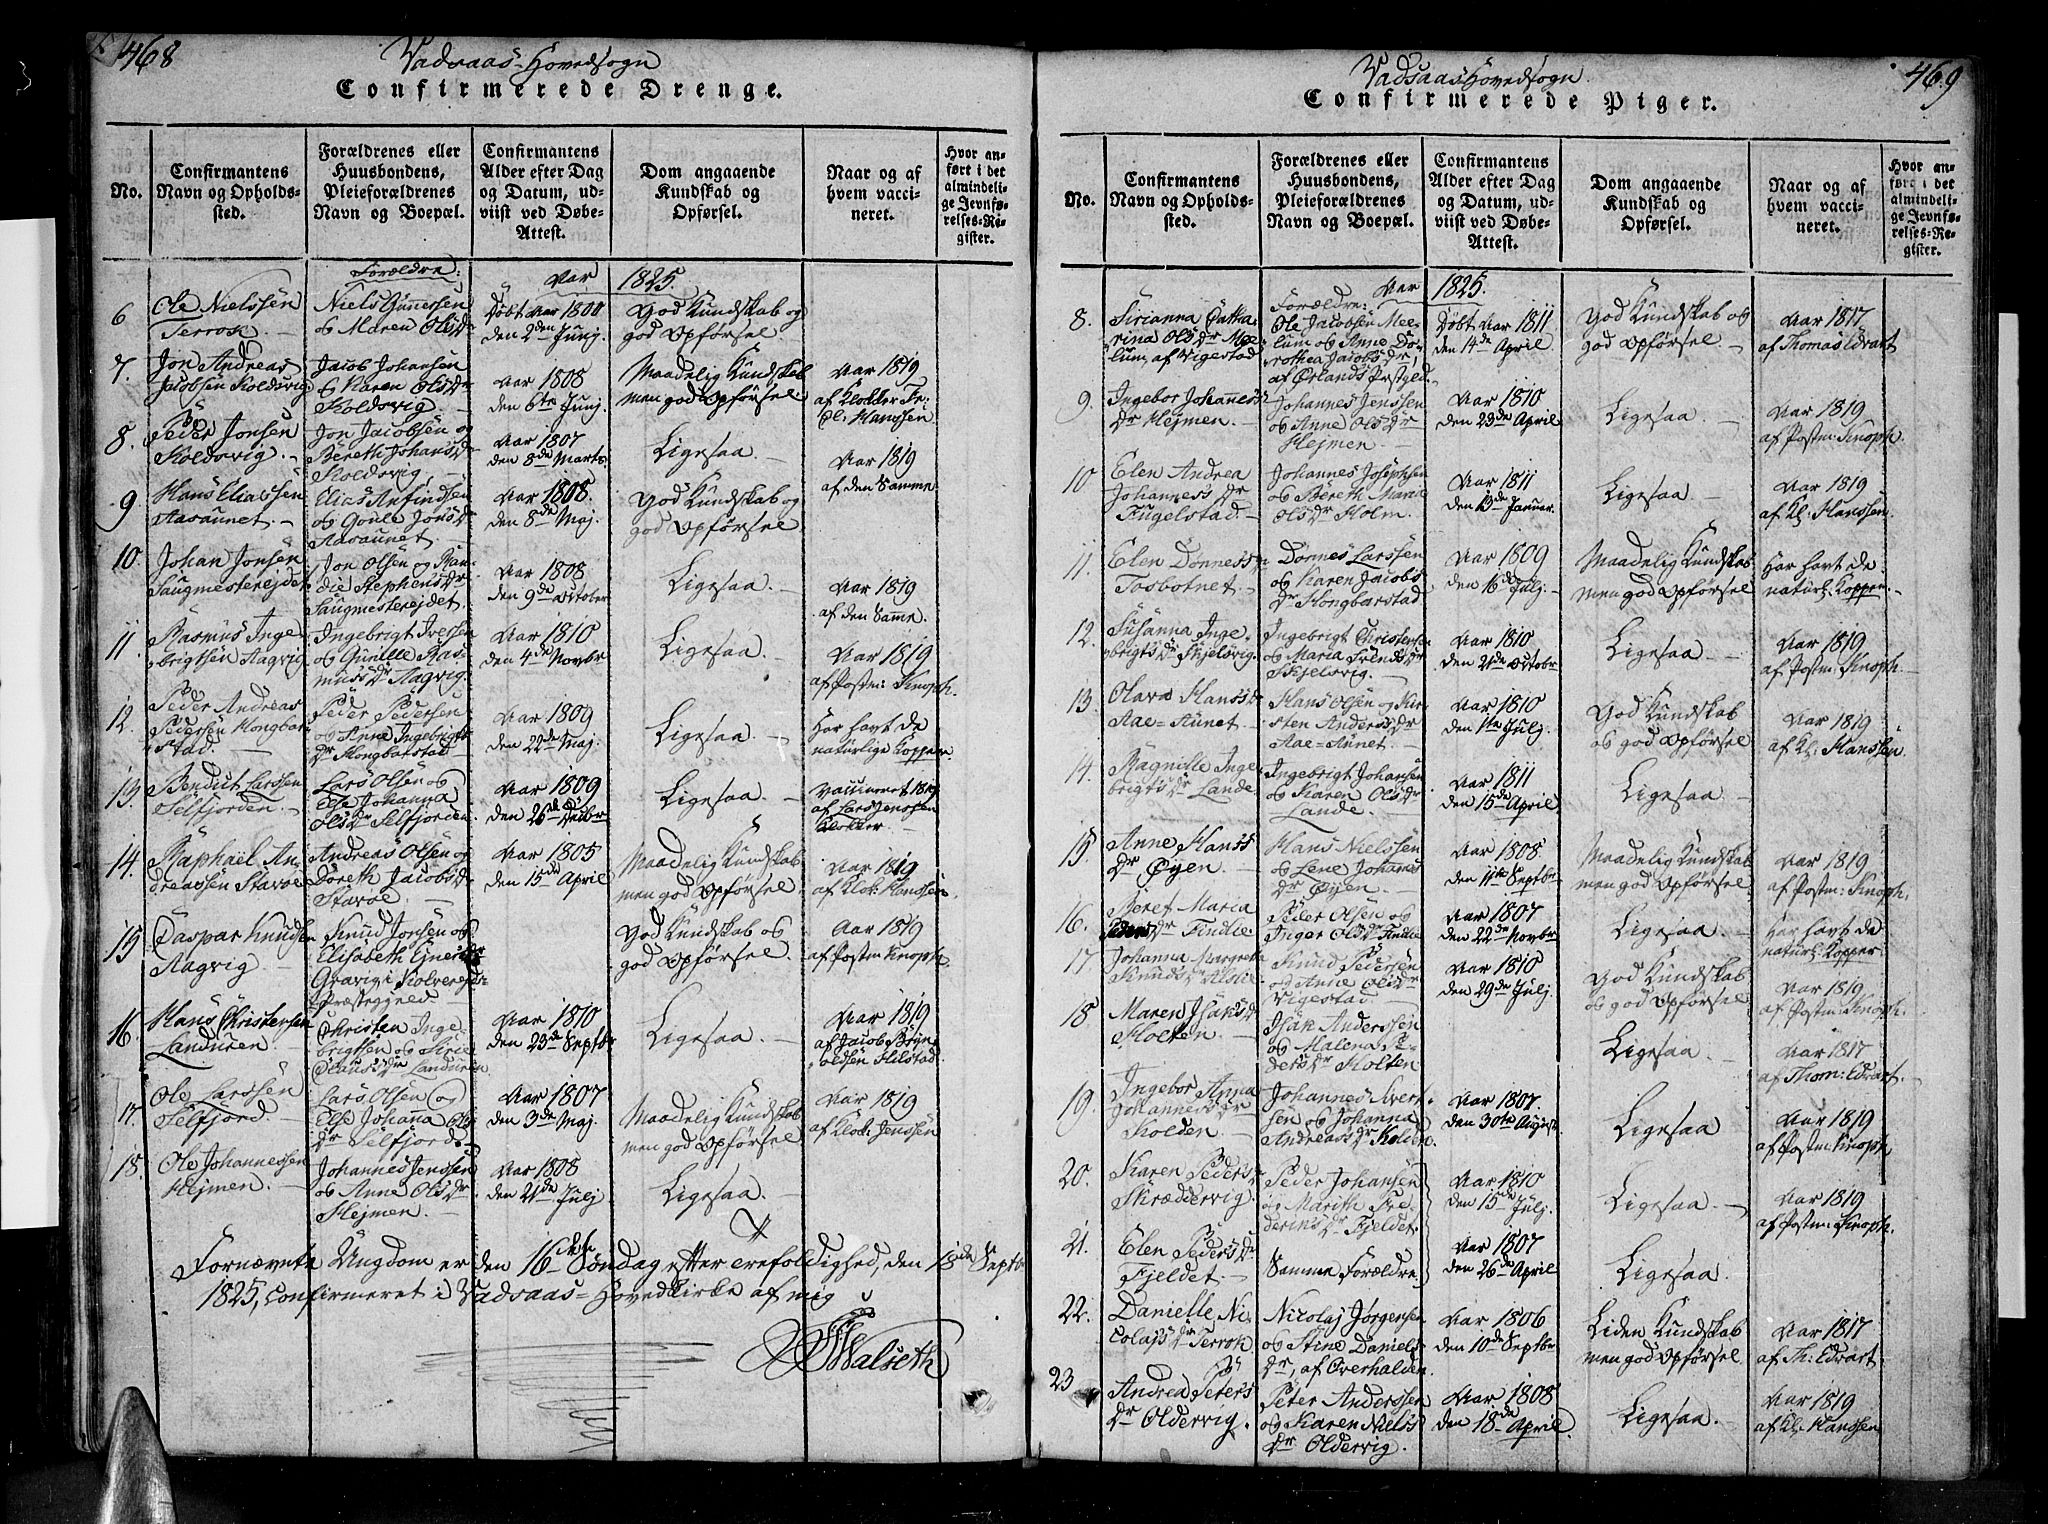 468
Vadsaas-Hovedsogn
Confirmerede Drenge.
No.
Confirmantens
Navn og Opholds-
sted.
Forældrenes eller
Huusbondens,
Pleieforældrenes
Navn og Boepæl.
Confirmantens
Alder efter Dag
og Datum, ud-
viist ved Døbe-
Attest.
Dom angaaende
Kundskab og
Opførsel.
Naar og af
hvem vacci-
neret.
Hvor an-
ført i det
almindeli-
ge Jevnfø-
relses-Re-
gister.
Forældre:
Aar 1825.
6
Ole Nielssen
Terrosk.
Niels
og Maren Olsdr
Døbt Aar
den 2den Junj.
God Kundskab og
god Opførsel
7.
Jon Andreas
Jacobsen Koldsvig
Jacob Johansen
og Karen Olsdr
Koldsvig
Aar 1808
den 6te Junj.
Maadelig Kundskab
men god Opførsel
Aar 1819
af Klokker
Hanssen
8.
Peder Jonsen
Koldsvig.
Jon Jacobsen og
Bereth Johansd
Koldsvig
Aar 1807
den 8de Marts
Ligesaa
Aar 1819
af den Samme
9
Hans Eliassen
Aasaunet.
Elias Anfindsen
og Goule Jonsdr
Aasaunet.
Aar 1808.
den 8de Maj.
God Kundskab og
god Opførsel
10.
Johan Jonsen
Saugmesterejdet
Jon Olsen og Ran-
die Stephensdr
Saugmesterejdet.
Aar 1808
den 9de October
Ligesaa
Aar 1819
af den Samme.
11.
Rasmus Inge
brigtsen Aagvig
Ingebrigt Iversen
og Gunille Ras-
musdr Aagvig.
Aar 1810
den 4de Novbr
Ligesaa.
Aar 1819
af Postm: Knoph.
12.
Peder Andreas
Pedersen Hongbar
stad.
Peder Pedersen
og Anne Ingebrigts
dr Hongbarstad
Aar 1809
den 22de Maj.
Ligesaa.
Har havt de
naturlige Kopper.
13.
Bendict Larssen
Selfjorden.
Lars Olsen og
Else Johanna
Olsdr Selfjorden
Aar 1809
den 26de Decbr
Ligesaa
vaccineret 1819
af Lars Jenssen
Klokker.
14.
Raphael An
dreassen Stavøe
Andreas Olsen og
Doreth Jacobsdr
Stavøe
Aar 1805
den 15de April
Maadelig Kundskab
men god Opførsel.
Aar 1819
af Klok: Hanssen.
15
Caspar Knudsen
Aagvig
Knud Jonsen og
Elisabeth
Gravvig i Kolvereids
Præstegjeld
God Kundskab og
god Opførsel.
Aar 1819
af Postm: Knoph.
16.
Hans Christensen
Landuren.
Christen Inge-
brigtsen og Sirie
Clausdr Landuren
Aar 1810
den 23de Septbr
Ligesaa
Aar 1819
af Jacob Bryn
oldsen Hilstad.
17.
Ole Larssen
Selfjord
Lars Olsen og
Else Johanna Ols
dr Selfjord
Aar 1807
den 3de Maj.
Maadelig Kundskab
men god Opførsel
Aar 1819
af Klok: Jenssen
18.
Ole Johannessen
Hejmen.
Johannes Jenssen
og Anne Olsdr
Hejmen.
Aar 1808
den 21de Julj
Ligesaa.
Fornævnte Ungdom er den 16de Søndag efter Trefoldighed, den 18de Septbr
1825, confirmeret i Vadsaas-Hovedkirke af mig
Walseth
469
Vadsaas Hovedsogn
Confirmerede Piger.
No.
Confirmantens
Navn og Opholds-
sted.
Forældrenes eller
Huusbondens,
Pleieforældrenes
Navn og Boepæl.
Confirmantens
Alder efter Dag
og Datum, ud-
viist ved Døbe-
Attest.
Dom angaaende
Kundskab og
Opførsel.
Naar og af
hvem vacci-
neret.
Hvor an-
ført i det
almindeli-
ge Jevnfø-
relses-Re-
gister.
Aar 1825.
8.
Sirianna Catha
rina Olsdr Mee
lum, af Vigestad
Forældre:
Ole Jacobsen Mee-
lum og Anne Do-
rothea Jacobsdr
af Ørlands Præstgield.
Døbt Aar 1811
den 14de April
God Kundskab og
god Opførsel.
Aar 1817
af Thomas Edvart
9.
Ingebor Johannes
dr Hejmen.
Johannes Jenssen
og Anne Olsdr
Hejmen
Aar 1810
den 23de April
Ligesaa
Aar 1819
af Postm: Knoph.
10
Elen Andrea
Johannesdr
Fugelstad.
Johannes Josephsen
og Bereth Maria
Olsdr Holm.
Aar 1811
den 13de Januar.
Ligesaa
Aar 1819
af Kl: Hanssen.
11.
Elen Dønnes
Tosbotnet
Dønnes Larssen
og Karen Jacobs
dr Hongbarstad
Aar 1809
den 16de Julj.
Maadelig Kundskab
men god Opførsel
Har havt de
naturl: Kopper.
12.
Susanna Inge-
brigtsdr Kjelsvig.
Ingebrigt Christensen
og Maria Svendsdr
Kjelsvig.
Aar 1810
den 21de October
Ligesaa
Aar 1819
af Postm: Knoph.
13.
Olava Hansdr
Aae-Aunet
Hans Olsen og Kir-
sten Andersdr
Aae-Aunet.
Aar 1810
den 1ste Julj.
God Kundskab
og god Opførsel
Aar 1819
af Kl: Hanssen
14.
Ragnille Inge
brigtsdr Lande
Ingebrigt Johansen
og Karen Olsdr
Lande.
Aar 1811
den 15de April
Ligesaa
15
Anne Hans
dr Øyen
Hans Nielssen
og Lene Johannes
dr Øyen
Aar 1808.
den 11te Septbr
Maadelig Kundskab
men god Opførsel
Aar 1819
af Postm: Knoph.
16.
Beret Maria
Pedersdr Findlie.
Peder Olsen og
Inger Olsdr Findlie
Aar 1807
den 22de Novbr
Ligesaa
Har havt de
naturl: Kopper
17
Johanna Margreta
Knudsdr
Knud Pedersen
og Anne Olsdr
Vigestad
Aar 1810
den 29de Julj.
God Kundskab
og god Opførsel
Aar 1819
af Postm: Knoph.
18
Maren Isaksdr
Holten.
Isak Anderssen
og Malena Pe-
dersdr Holten
Ligesaa
Aar 1817
af Thom: Edvart
19.
Ingebor Anna
Johannesdr
Kolden
Johannes Siverts
sen og Johanna
Andreasdr Kolden
Aar 1807.
den 30te August
Ligesaa
Aar 1819
af Postm: Knoph
20.
Karen Peders
Skræddervig.
Peder Johansen
og Marith Fre-
deriksdr Fjeldet.
Aar 1810
den 15de Julj.
Ligesaa
Aar 1819
af Postm: Knoph.
21.
Elen Pedersdr
Fjeldet.
Samme Forældre
Aar 1807
den 26de April
Ligesaa
22.
Danielle Ni-
colajsdr Terrosk
Nicolaj Jørgensen
og Stine Daniels
dr, af Overhalden
Aar 1806
den 10de Septbr
Liden Kundskab
men god Opførsel
Aar 1817
af Th: Edvart
23
Andrea Peters
dr Oldervig.
Peter Anderssen
og Karen Niels
dr Oldervig.
Aar 1808
den 18de April.
Ligesaa.
Aar 1819
af Kl: Hanssen